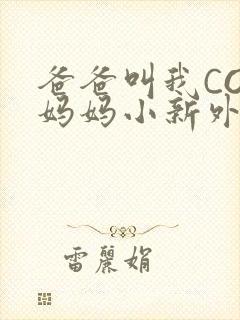 爸爸叫我CO
妈妈小新外
雷丽娟